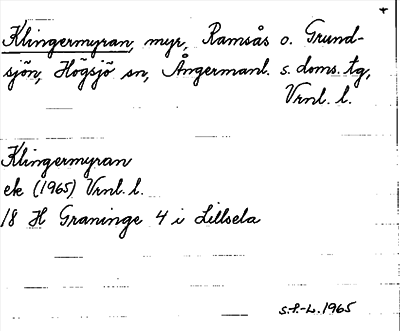 Klingermyran, myr, Ramsås o. Grund-
sjön, Högsjö sn, Ångermanl. s. doms. tg,
Vrnl. l.
Klingermyran
ek (1965) Vrnl. l.
18 H Graninge 4 i Lillsela
S.F.-L. 1965